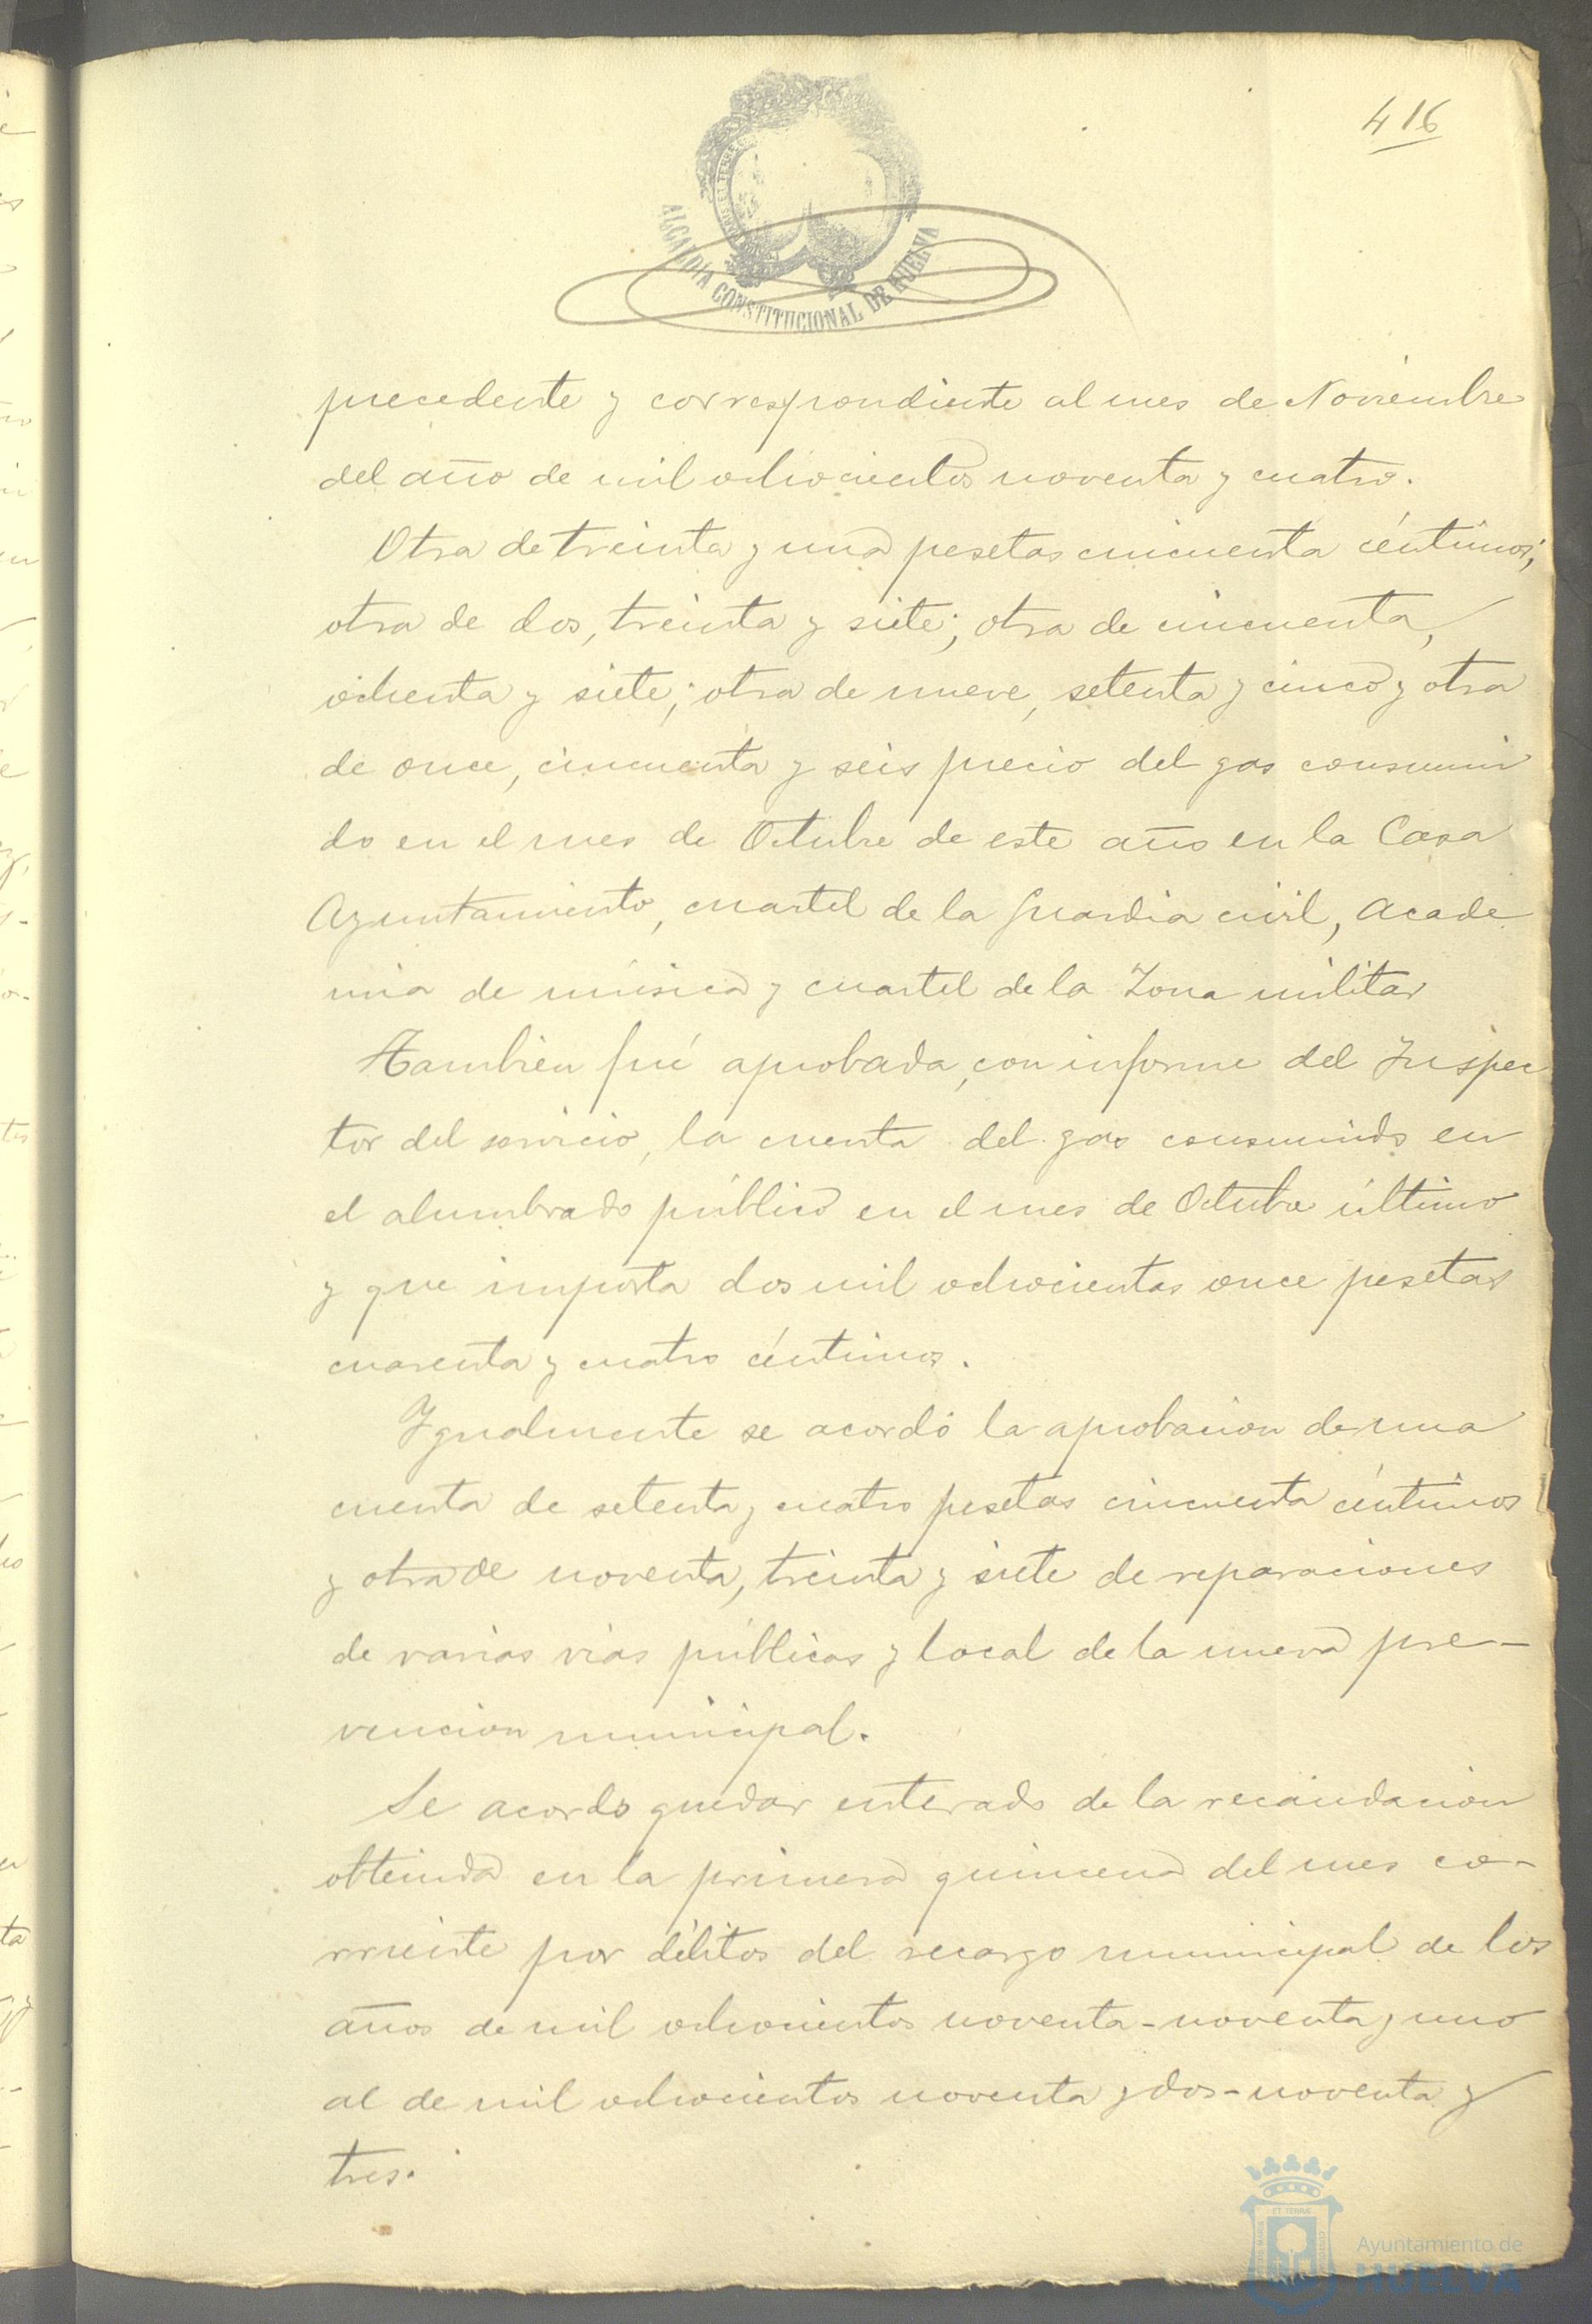 416
ALCALDÍA CONSTITUCIONAL DE HUELVA
precedente y correspondiente al mes de Noviembre
del año de mil ochocientos noventa y cuatro.
Otra de treinta y una pesetas cincuenta céntimos;
otra de dos, treinta y siete; otra de cincuenta,
ochenta y siete; otra de nueve, setenta y cinco y otra
de once, cincuenta y seis precio del gas consumi
do en el mes de Octubre de este año en la Casa
Ayuntamiento, cuartel de la Guardia civil, Acade
mia de música y cuartel de la Zona militar
Tambien fué aprobada, con informe del Inspec
tor del servicio, la cuenta del gas consumido en
el alumbrado público en el mes de Octubre último
y que importa dos mil ochocientas once pesetas
cuarenta y cuatro céntimos.
Igualmente se acordó la aprobacion de una
cuenta de setenta y cuatro pesetas cincuenta céntimos
y otra de noventa, treinta y siete de reparaciones
de varias vias públicas y local de la nueva pre-
vencion municipal.
Se acordo quedar enterado de la recaudacion
obtenida en la primera quincena del mes co-
rriente por débitos del recargo municipal de los
años de mil ochocientos noventa-noventa y uno
al de mil ochocientos noventa y dos-noventa y
tres.
Ayuntamiento de
HUELVA